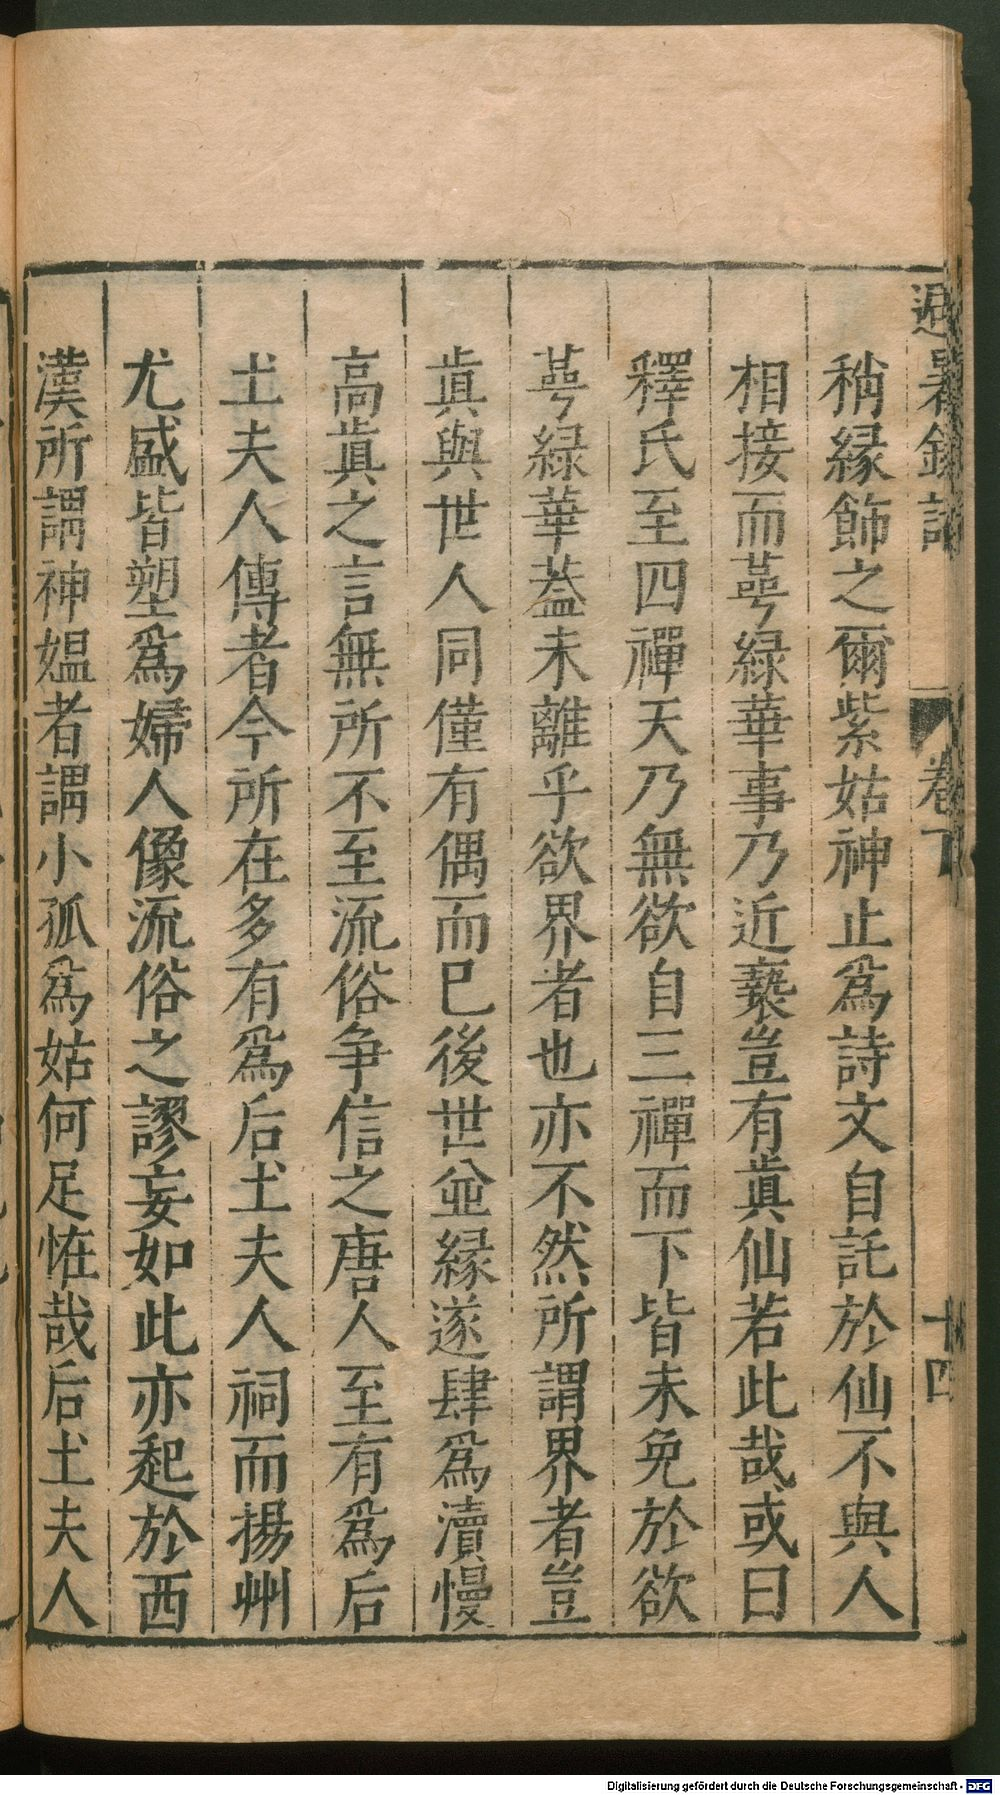 避暑錄話
卷下
十四
稱緣飾之爾紫姑神止爲詩文自託於仙不與人
相接而萼綠華事乃近褻豈有眞仙若此哉或曰
釋氏至四禪天乃無欲自三禪而下皆未免於欲
萼綠華蓋未離乎欲界者也亦不然所謂界者豈
眞與世人同僅有偶而已後世並緣遂肆爲瀆慢
高眞之言無所不至流俗爭信之唐人至有爲后
土夫人傳者今所在多有爲后土夫人祠而揚州
尤盛皆塑爲婦人像流俗之謬妄如此亦起於西
漢所謂神媼者謂小孤爲姑何足恠哉后土夫人
Digitalisierung gefördert durch die Deutsche Forschungsgemeinschaft - DFG